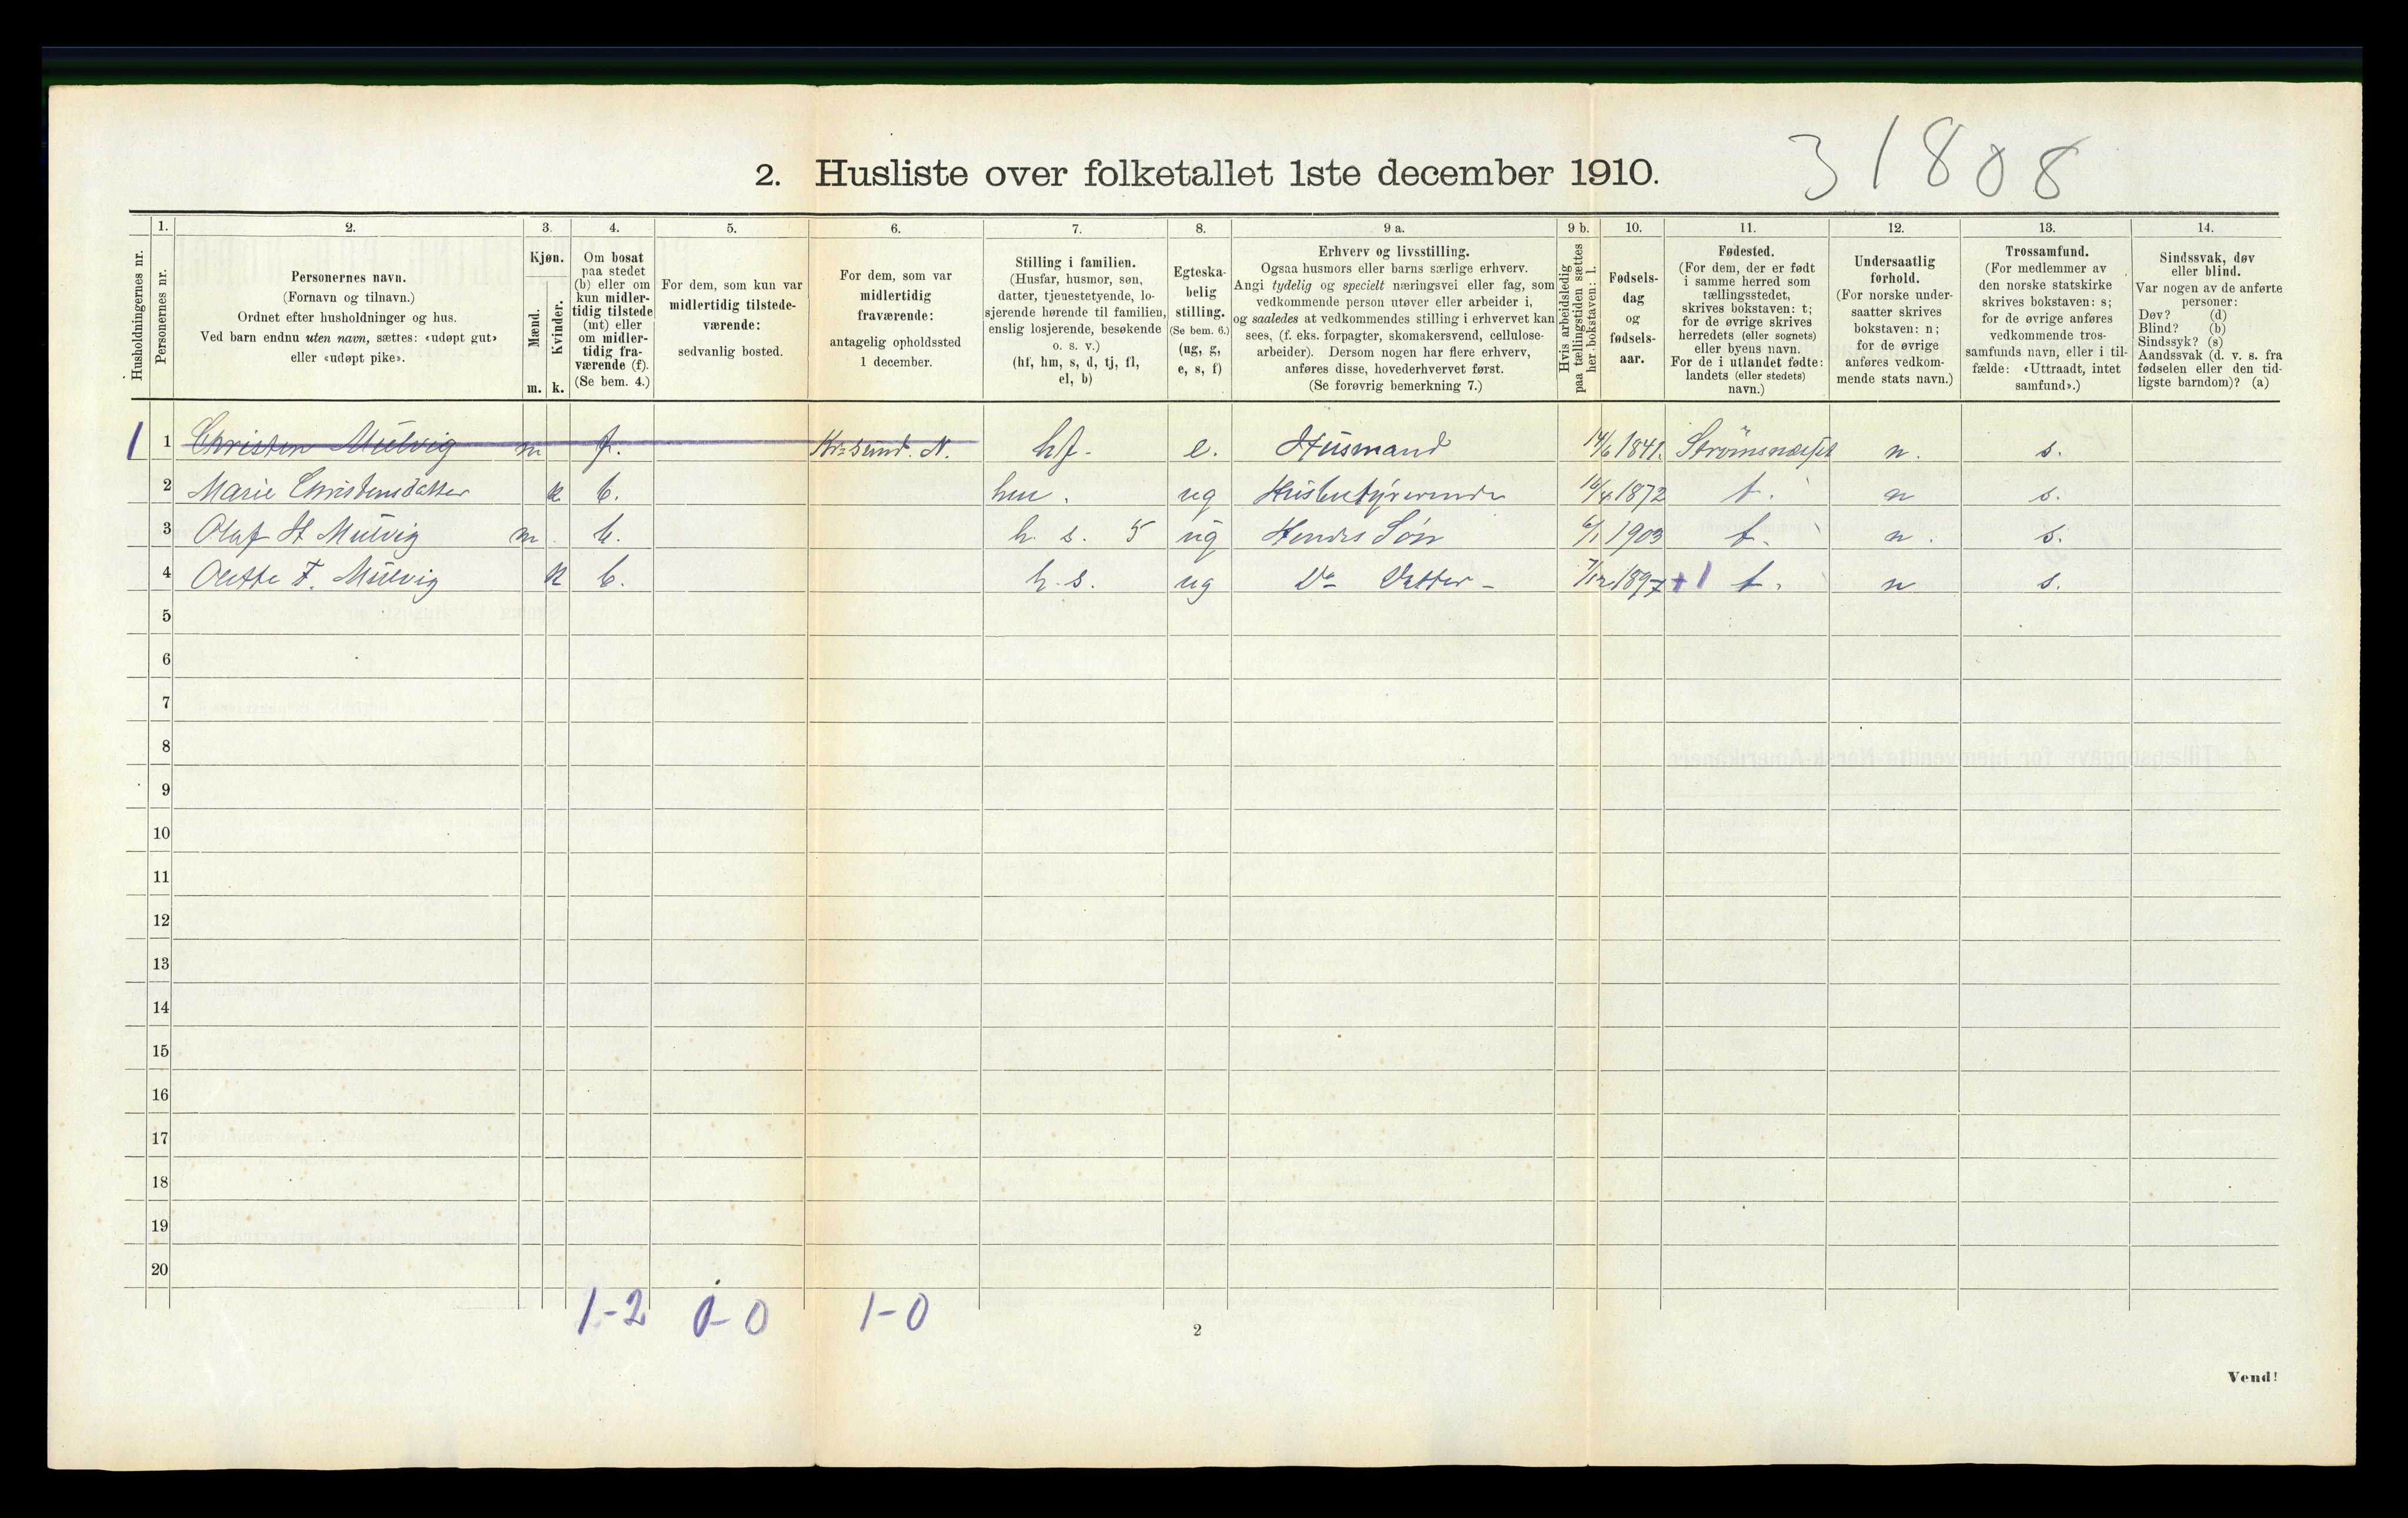 31808
2. Husliste over folketallet 1ste december 1910.
Husholdningernes nr.
1.
Personernes nr.
2.
Personernes navn.
(Fornavn og tilnavn.)
Ordnet efter husholdninger og hus.
Ved barn endnu uten navn, sættes: «udøpt gut»
eller «udøpt pike».
3.
Kjøn.
Mænd.
Kvinder.
m. k.
4.
Om bosat
paa stedet
(b) eller om
kun midler-
tidig tilstede
(mt) eller
om midler-
tidig fra-
værende (f).
(Se bem. 4.)
5.
For dem, som kun var
midlertidig tilstede-
værende:
sedvanlig bosted.
6.
For dem, som var
midlertidig
fraværende:
antagelig opholdssted
1 december.
7.
Stilling i familien.
(Husfar, husmor, søn,
datter, tjenestetyende, lo-
sjerende hørende til familien,
enslig losjerende, besøkende
o. s. v.)
(hf, hm, s, d, tj, fl,
el, b)
8.
Egteska-
belig
stilling.
(Se bem. 6.)
(ug, g,
e, s, f)
9 a.
Erhverv og livsstilling.
Ogsaa husmors eller barns særlige erhverv.
Angi tydelig og specielt næringsvei eller fag, som
vedkommende person utøver eller arbeider i,
og saaledes at vedkommendes stilling i erhvervet kan
sees, (f. eks. forpagter, skomakersvend, cellulose-
arbeider). Dersom nogen har flere erhverv,
anføres disse, hovederhvervet først.
(Se forøvrig bemerkning 7.)
9 b.
Hvis arbeidsledig
paa tællingstiden sættes
her bokstaven: l.
10.
Fødsels-
dag
og
fødsels-
aar.
11.
Fødested.
(For dem, der er født
i samme herred som
tællingsstedet,
skrives bokstaven: t;
for de øvrige skrives
herredets (eller sognets)
eller byens navn.
For de i utlandet fødte:
landets (eller stedets)
navn.)
12.
Undersaatlig
forhold.
(For norske under-
saatter skrives
bokstaven: n;
for de øvrige
anføres vedkom-
mende stats navn.)
13.
Trossamfund.
(For medlemmer av
den norske statskirke
skrives bokstaven: s;
for de øvrige anføres
vedkommende tros-
samfunds navn, eller i til-
fælde: «Uttraadt, intet
samfund».)
14.
Sindssvak, døv
eller blind.
Var nogen av de anførte
personer:
Døv? (d)
Blind? (b)
Sindssyk? (s)
Aandssvak (d. v. s. fra
fødselen eller den tid-
ligste barndom)? (a)
1 1 Christen Mülvig m f. Kr=sund. N. hf. e. Husmand 14/6 1841. Strömsnæset n. s.
2 Marie Christensdatter k b. hm. ug 1872 t. n s.
3 Olaf St Mülvig m b. h. s. 5 ug Hendes Sön 6/1 1903 t. n. s.
4 Olette F. Mülvig k b. h. s. ug Do Datter - 7/12 1897 +1 t. n s.
5
6
7
8
9
10
11
12
13
14
15
16
17
18
19
20
1-2 0-0 1-0
2
Vend!